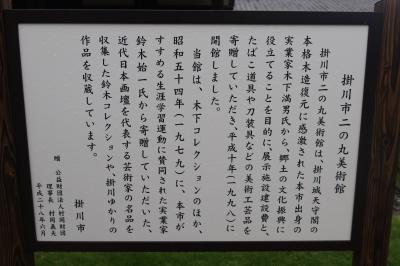 掛川市二の丸美術館
掛川市二の丸美術館は、掛川城天守閣の
本格木造復元に感激された本市出身の
実業家木下満男氏から、郷土の文化振興に
役立てることを目的に、展示施設建設費と、
たばこ道具や刀装具などの美術工芸品を
寄贈していただき、平成十年(一九九八)に
開館しました。
当館は、木下コレクションのほか、
昭和五十四年(一九七九)に、本市が
すすめる生涯学習運動に賛同された実業家
鈴木始一氏から寄贈していただいた、
近代日本画壇を代表する芸術家の名品を
収集した鈴木コレクションや、掛川ゆかりの
作品を収蔵しています。
掛川市
贈 公益財団法人村岡財団
理事長 村岡義夫
平成二十八年六月